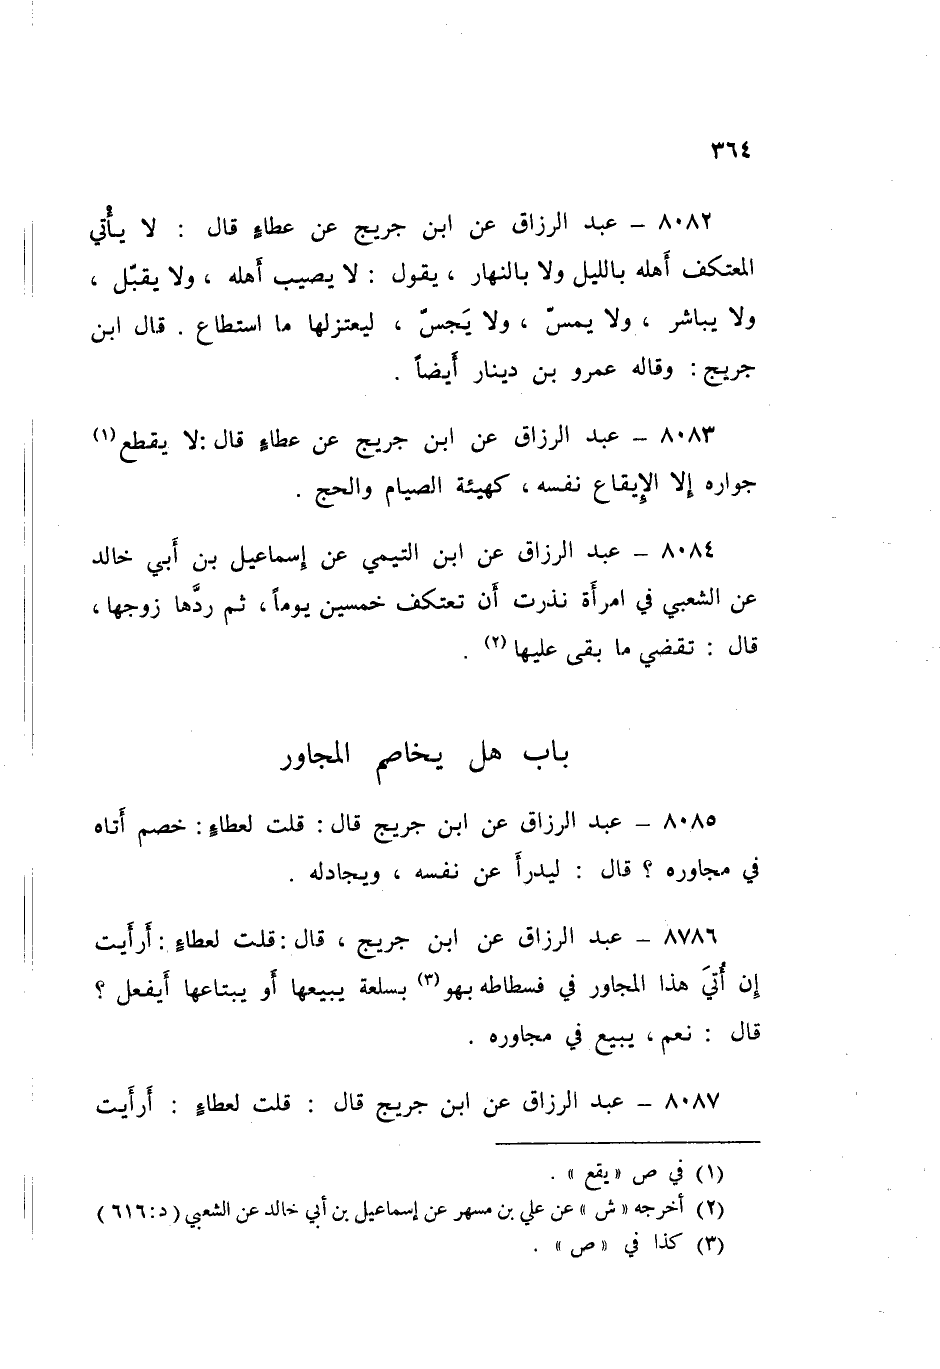 ٣٦٤
٨٠٨٢ – عبد الرزاق عن ابن جريج عن عطاءٍ قال : لا يأْتي
المعتكف أَهله بالليل ولا بالنهار ، يقول : لا يصيب أَهله ، ولا يقبّل ،
ولا يباشر ، ولا يمسّ ، ولا يَجسّ ، ليعتزلها ما استطاع . قال ابن
جريج : وقاله عمرو بن دينار أَيضاً .
٨٠٨٣ – عبد الرزاق عن ابن جريج عن عطاءٍ قال :لا يقطع(١)
جواره إلا الإيقاع نفسه ، كهيئة الصيام والحج .
٨٠٨٤ – عبد الرزاق عن ابن التيمي عن إسماعيل بن أَبي خالد
عن الشعبي في امرأَة نذرت أَن تعتكف خمسين يوماً ، ثم ردَّها زوجها ،
قال : تقضي ما بقى عليها(٢) .
باب هل يخاصم المجاور
٨٠٨٥ – عبد الرزاق عن ابن جريج قال : قلت لعطاءٍ : خصم أَتاه
في مجاوره ؟ قال : ليدرأَ عن نفسه ، ويجادله .
٨٧٨٦ – عبد الرزاق عن ابن جريج ، قال :قلت لعطاءٍ : أَرأَيت
إن أُتيَ هذا المجاور في فسطاطه بهو(٣) بسلعة يبيعها أَو يبتاعها أَيفعل ؟
قال : نعم ، يبيع في مجاوره .
٨٠٨٧ – عبد الرزاق عن ابن جريج قال : قلت لعطاءٍ : أَرأَيت
(١) في ص « يقع » .
(٢) أخرجه « ش » عن علي بن مسهر عن إسماعيل بن أبي خالد عن الشعبي ( د:٦١٦ )
(٣) كذا في « ص » .